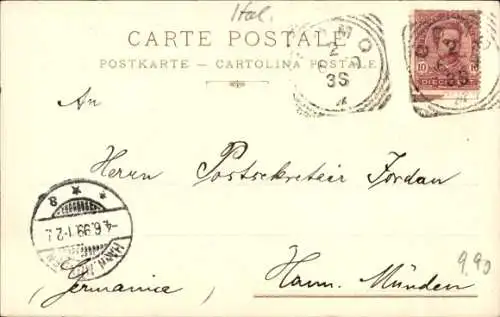 Ital.
CARTE POSTALE
POSTKARTE – CARTOLINA POSTALE
COMO
2
3S
10
DIECI
An
Herrn Postsekretair Jordan
8
-4.6.99.1-2N.
Hann. Münden
(Germania)
9.90